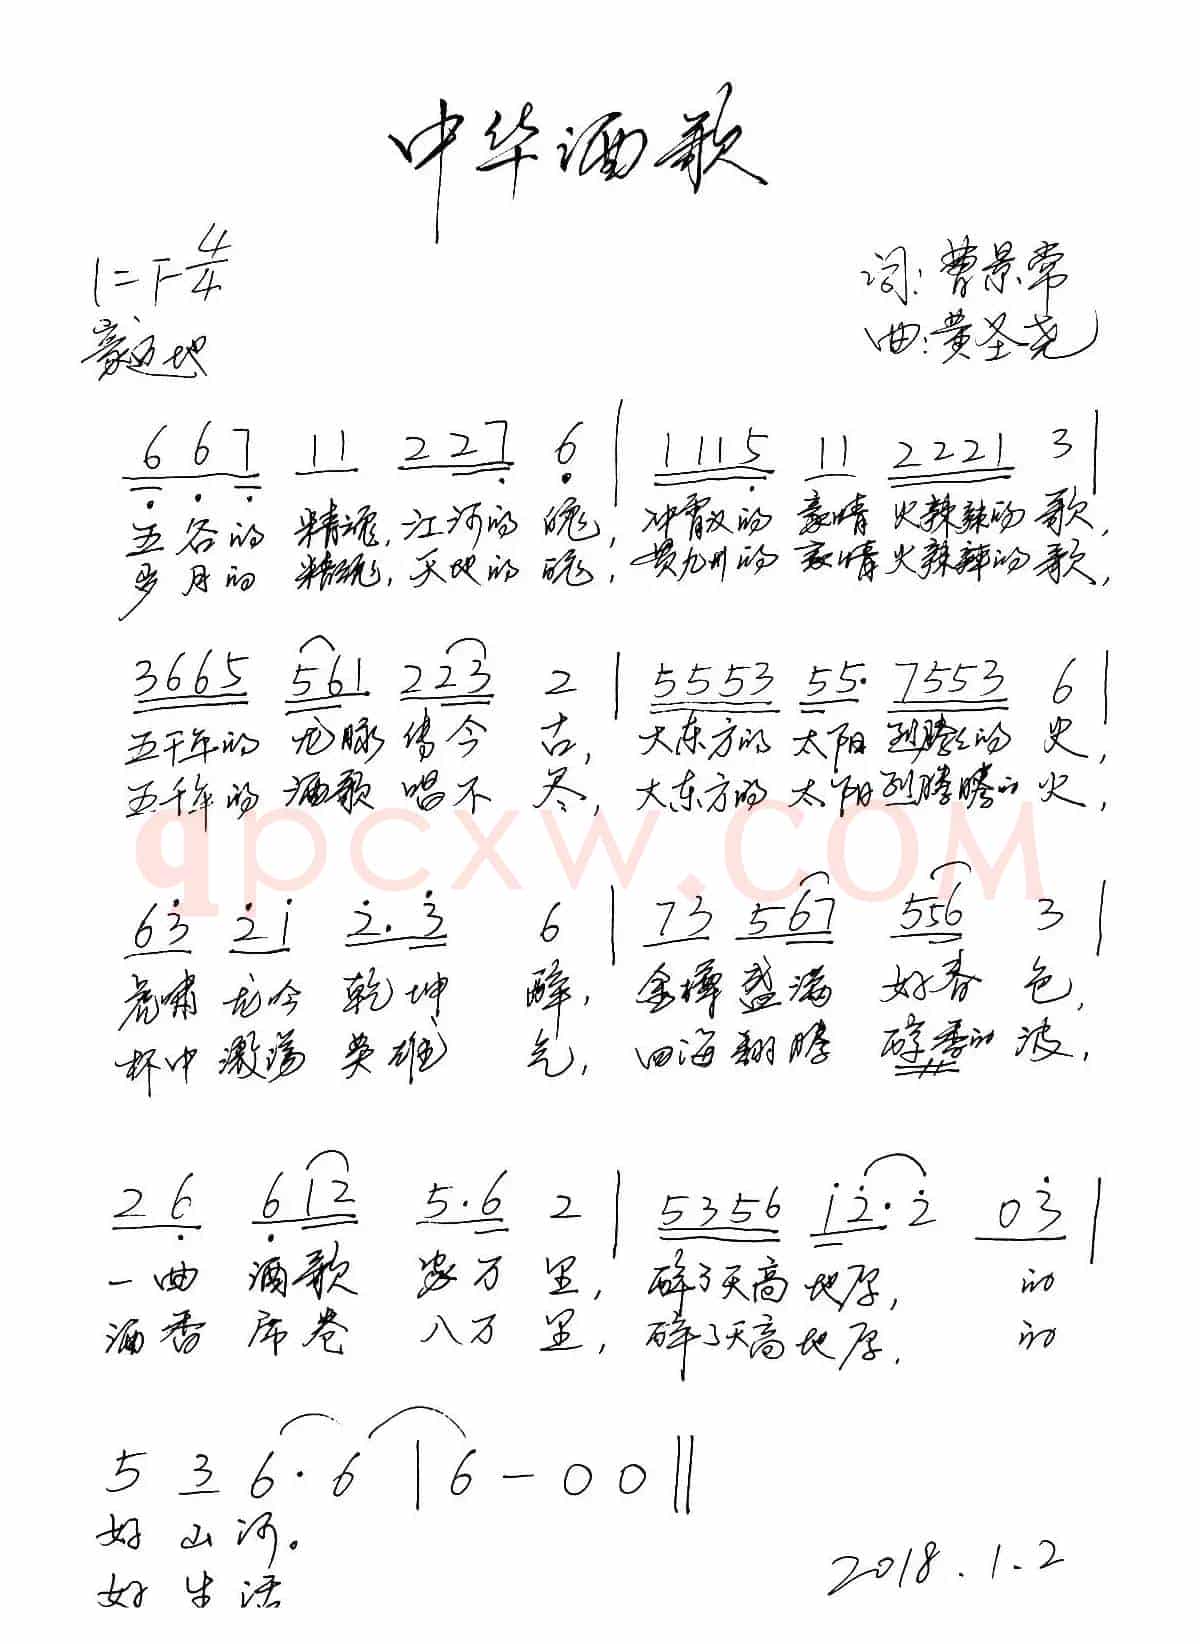 中华酒歌
1=F 4/4
词:曹景常
豪迈地
曲:黄圣尧
6 6 7 11 2 2 7 6 | 1 1 1 5 11 2 2 2 1 3 |
五谷的 精魂,江河的 魄, 冲霄汉的 豪情 火辣辣的 歌,
岁月的 精魂,天地的 魄, 贯九州的 豪情 火辣辣的 歌,
3 6 6 5 5 6 1 2 2 3 2 | 5 5 5 3 5 5· 7 5 5 3 6 |
五千年的 龙脉 传今 古, 大东方的 太阳 烈腾腾的 史,
五千年的 酒歌 唱不 尽, 大东方的 太阳 烈腾腾的 火,
6 3 2 1 2· 3 6 | 7 3 5 6 7 5 5 6 3 |
虎啸 龙吟 乾坤 醉, 金樽 盛满 好春 色,
杯中 激荡 英雄 气, 四海 翻腾 醇香的 波,
2 6 6 1 2 5· 6 2 | 5 3 5 6 1 2· 2 0 3 |
一曲 酒歌 家万 里, 醉了天高 地厚, 的
酒香 席卷 八万 里, 醉了天高 地厚, 的
5 3 6· 6 | 6 - 0 0 ||
好 山 河。
好 生 活
2018.1.2
qpcxw.COM